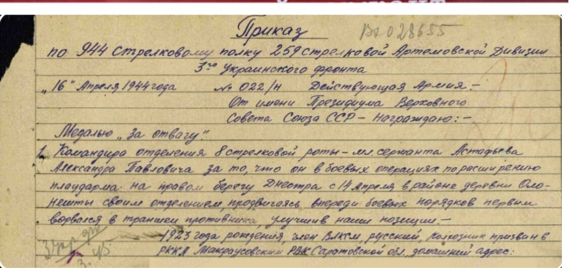 Приказ
Вх 028655
по 944 стрелковому полку 259 стрелковой Артемовской Дивизии
3го Украинского фронта
„16" Апреля 1944 года № 022/Н Действующая Армия:-
От имени Президиума Верховного
Совета Союза ССР - Награждаю:-
Медалью „За отвагу"
1. Командира отделения 8 стрелковой роты - мл сержанта Астафьева
Александра Павловича за то, что он в боевых операциях по расширению
плацдарма на правом берегу Днестра с 14 Апреля в районе деревни Оло-
нешты своим отделением продвигаясь впереди боевых порядков первым
ворвался в траншеи противника, улучшив наши позиции.-
1923 года рождения член ВЛКСМ русский, колхозник призван в
РККА Макаровским РВК Саратовской обл. домашний адрес: